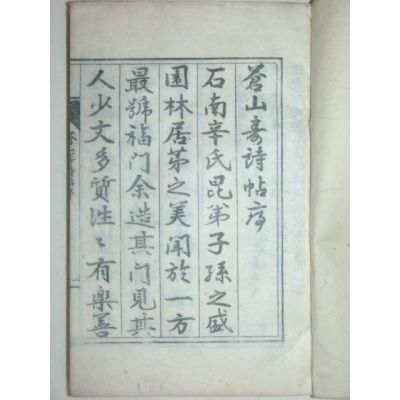 蒼山壽詩帖序
石南辛氏昆弟子孫之盛
園林居苐之美聞於一方
最號福門余造其門見其
人少文多質泩〻有樂善